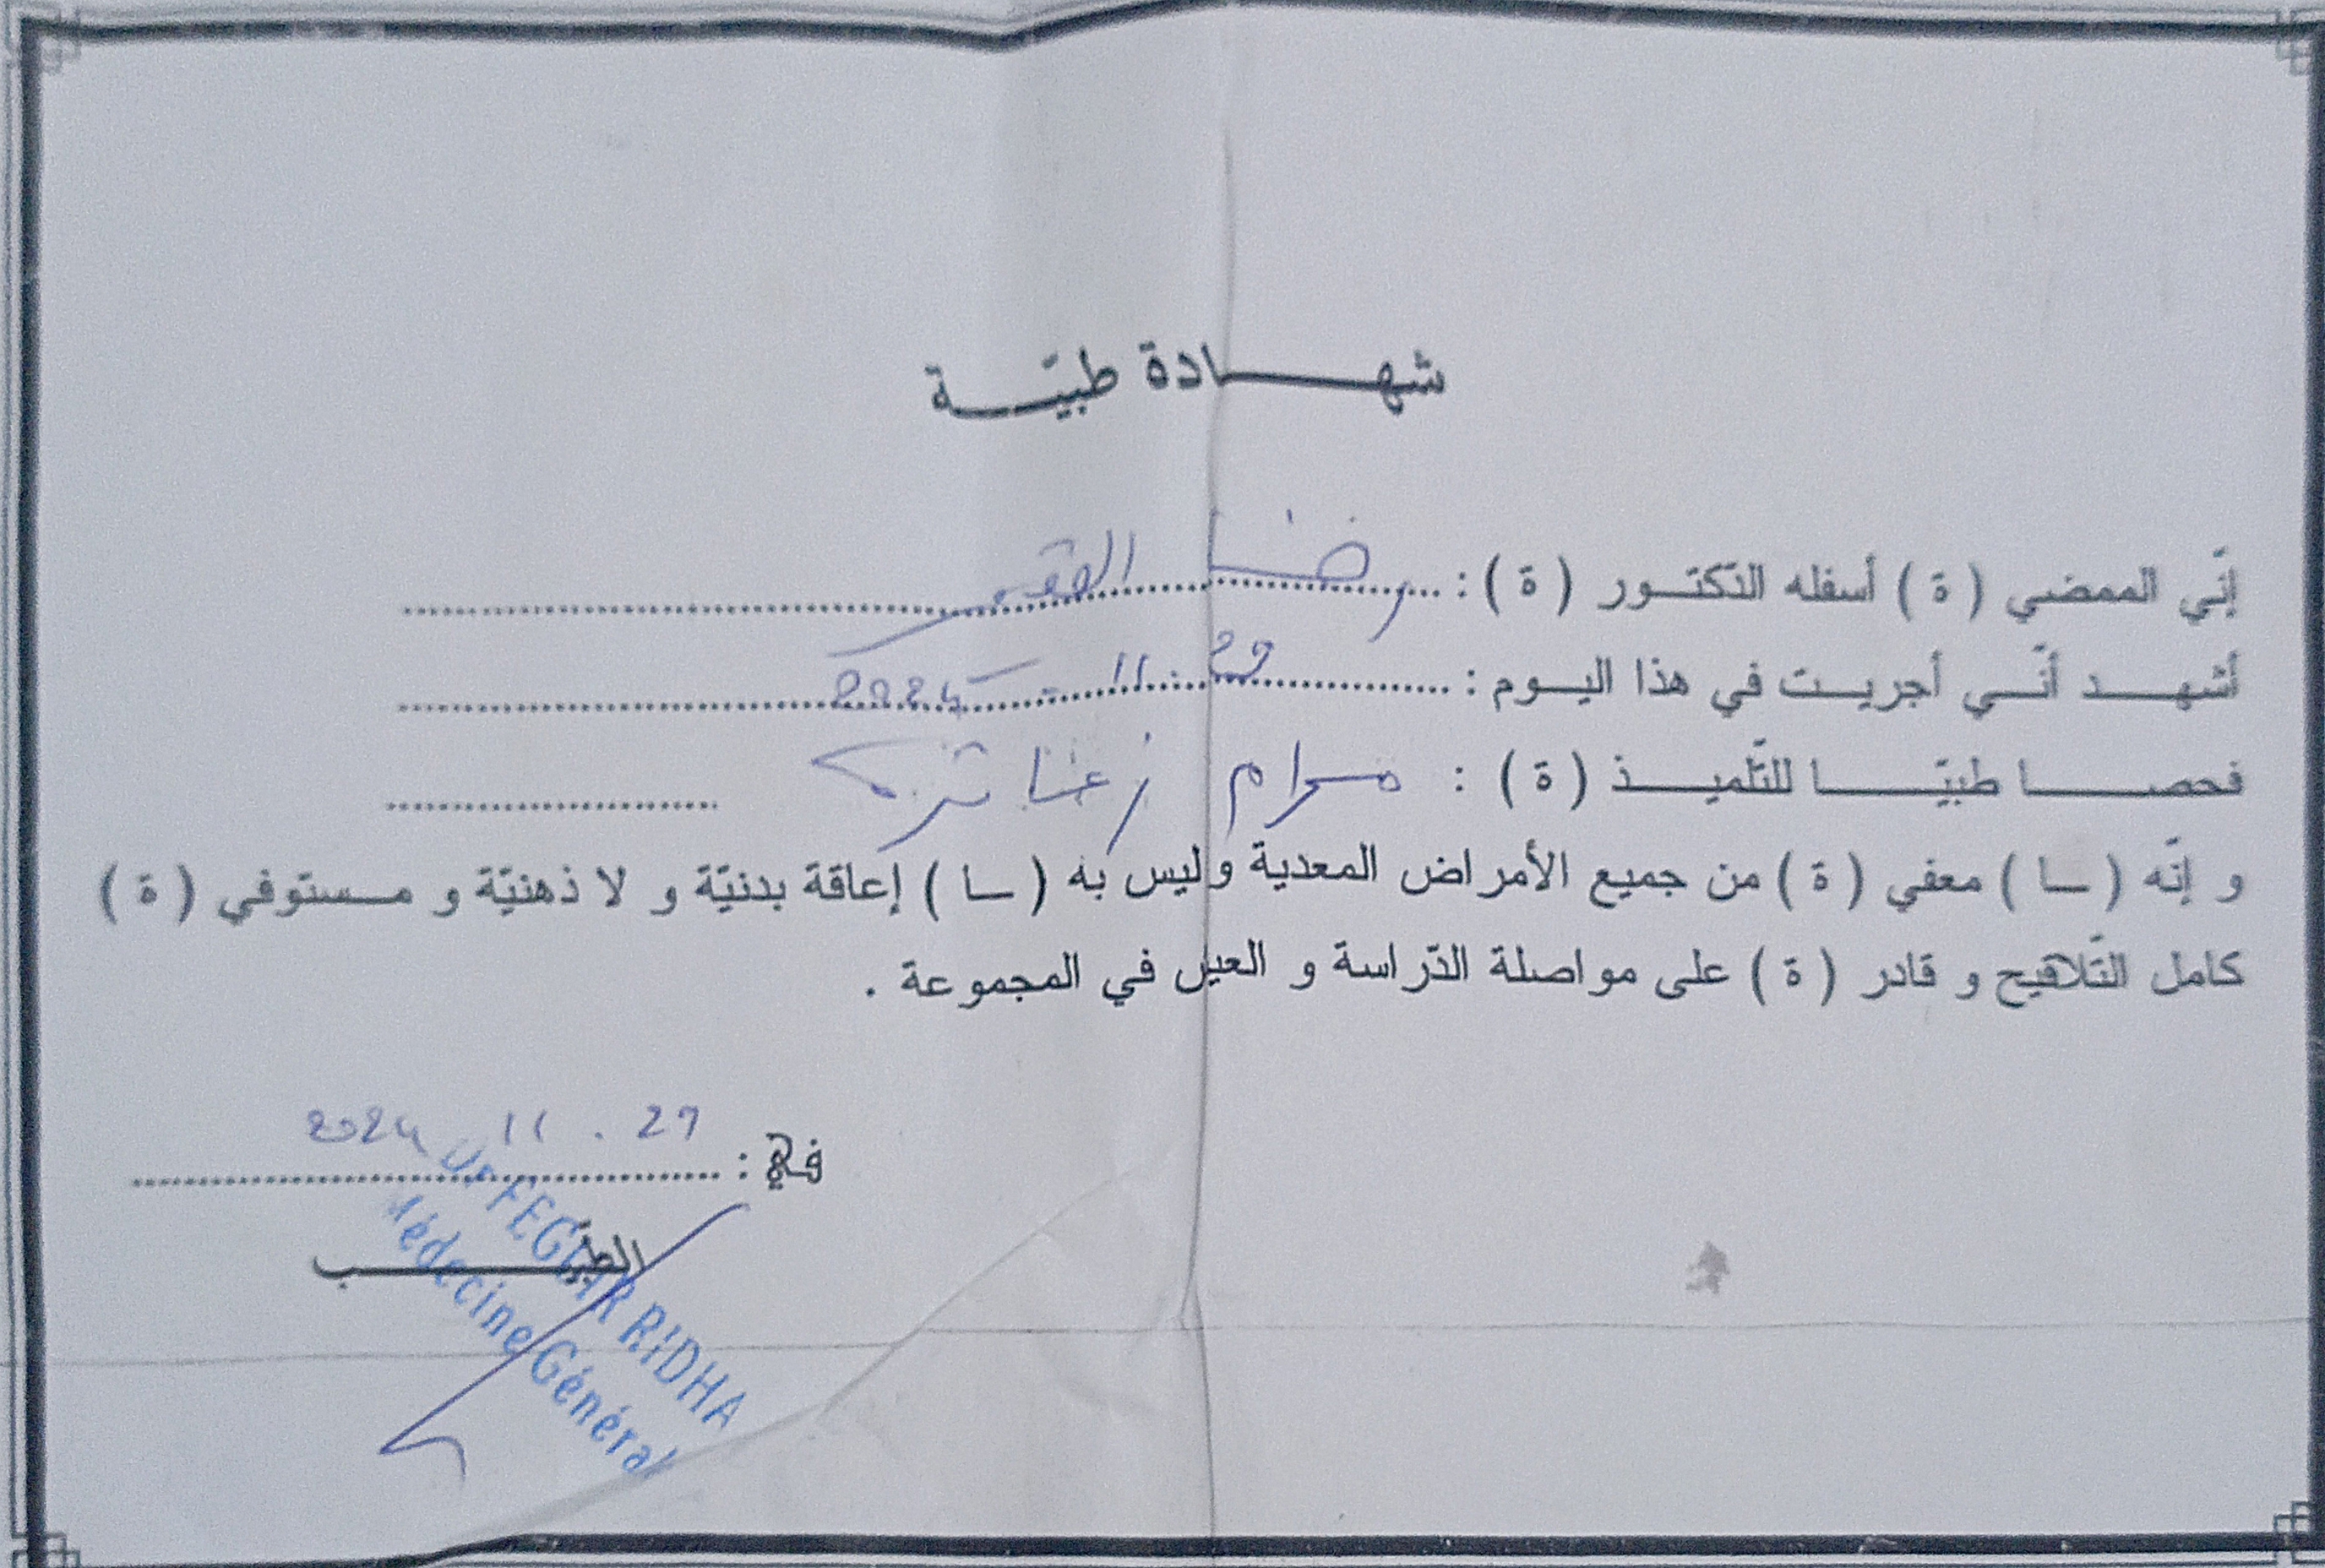 شهادة طبيّة
إنّي الممضي ( ة ) أسفله الدّكتور ( ة ) : رضا الفقير
أشهد أنّي أجريت في هذا اليوم : 29 . 11 - 2024
فحصا طبيّا للتّلميذ ( ة ) : مرام
و إنّه ( ـا ) معفي ( ة ) من جميع الأمراض المعدية وليس به ( ـا ) إعاقة بدنيّة و لا ذهنيّة و مستوفي ( ة )
كامل التّلاقيح و قادر ( ة ) على مواصلة الدّراسة و العيش في المجموعة .
في : 29 . 11 2024
الطّبيب
Dr FEGUIR RIDHA
Médecine Général